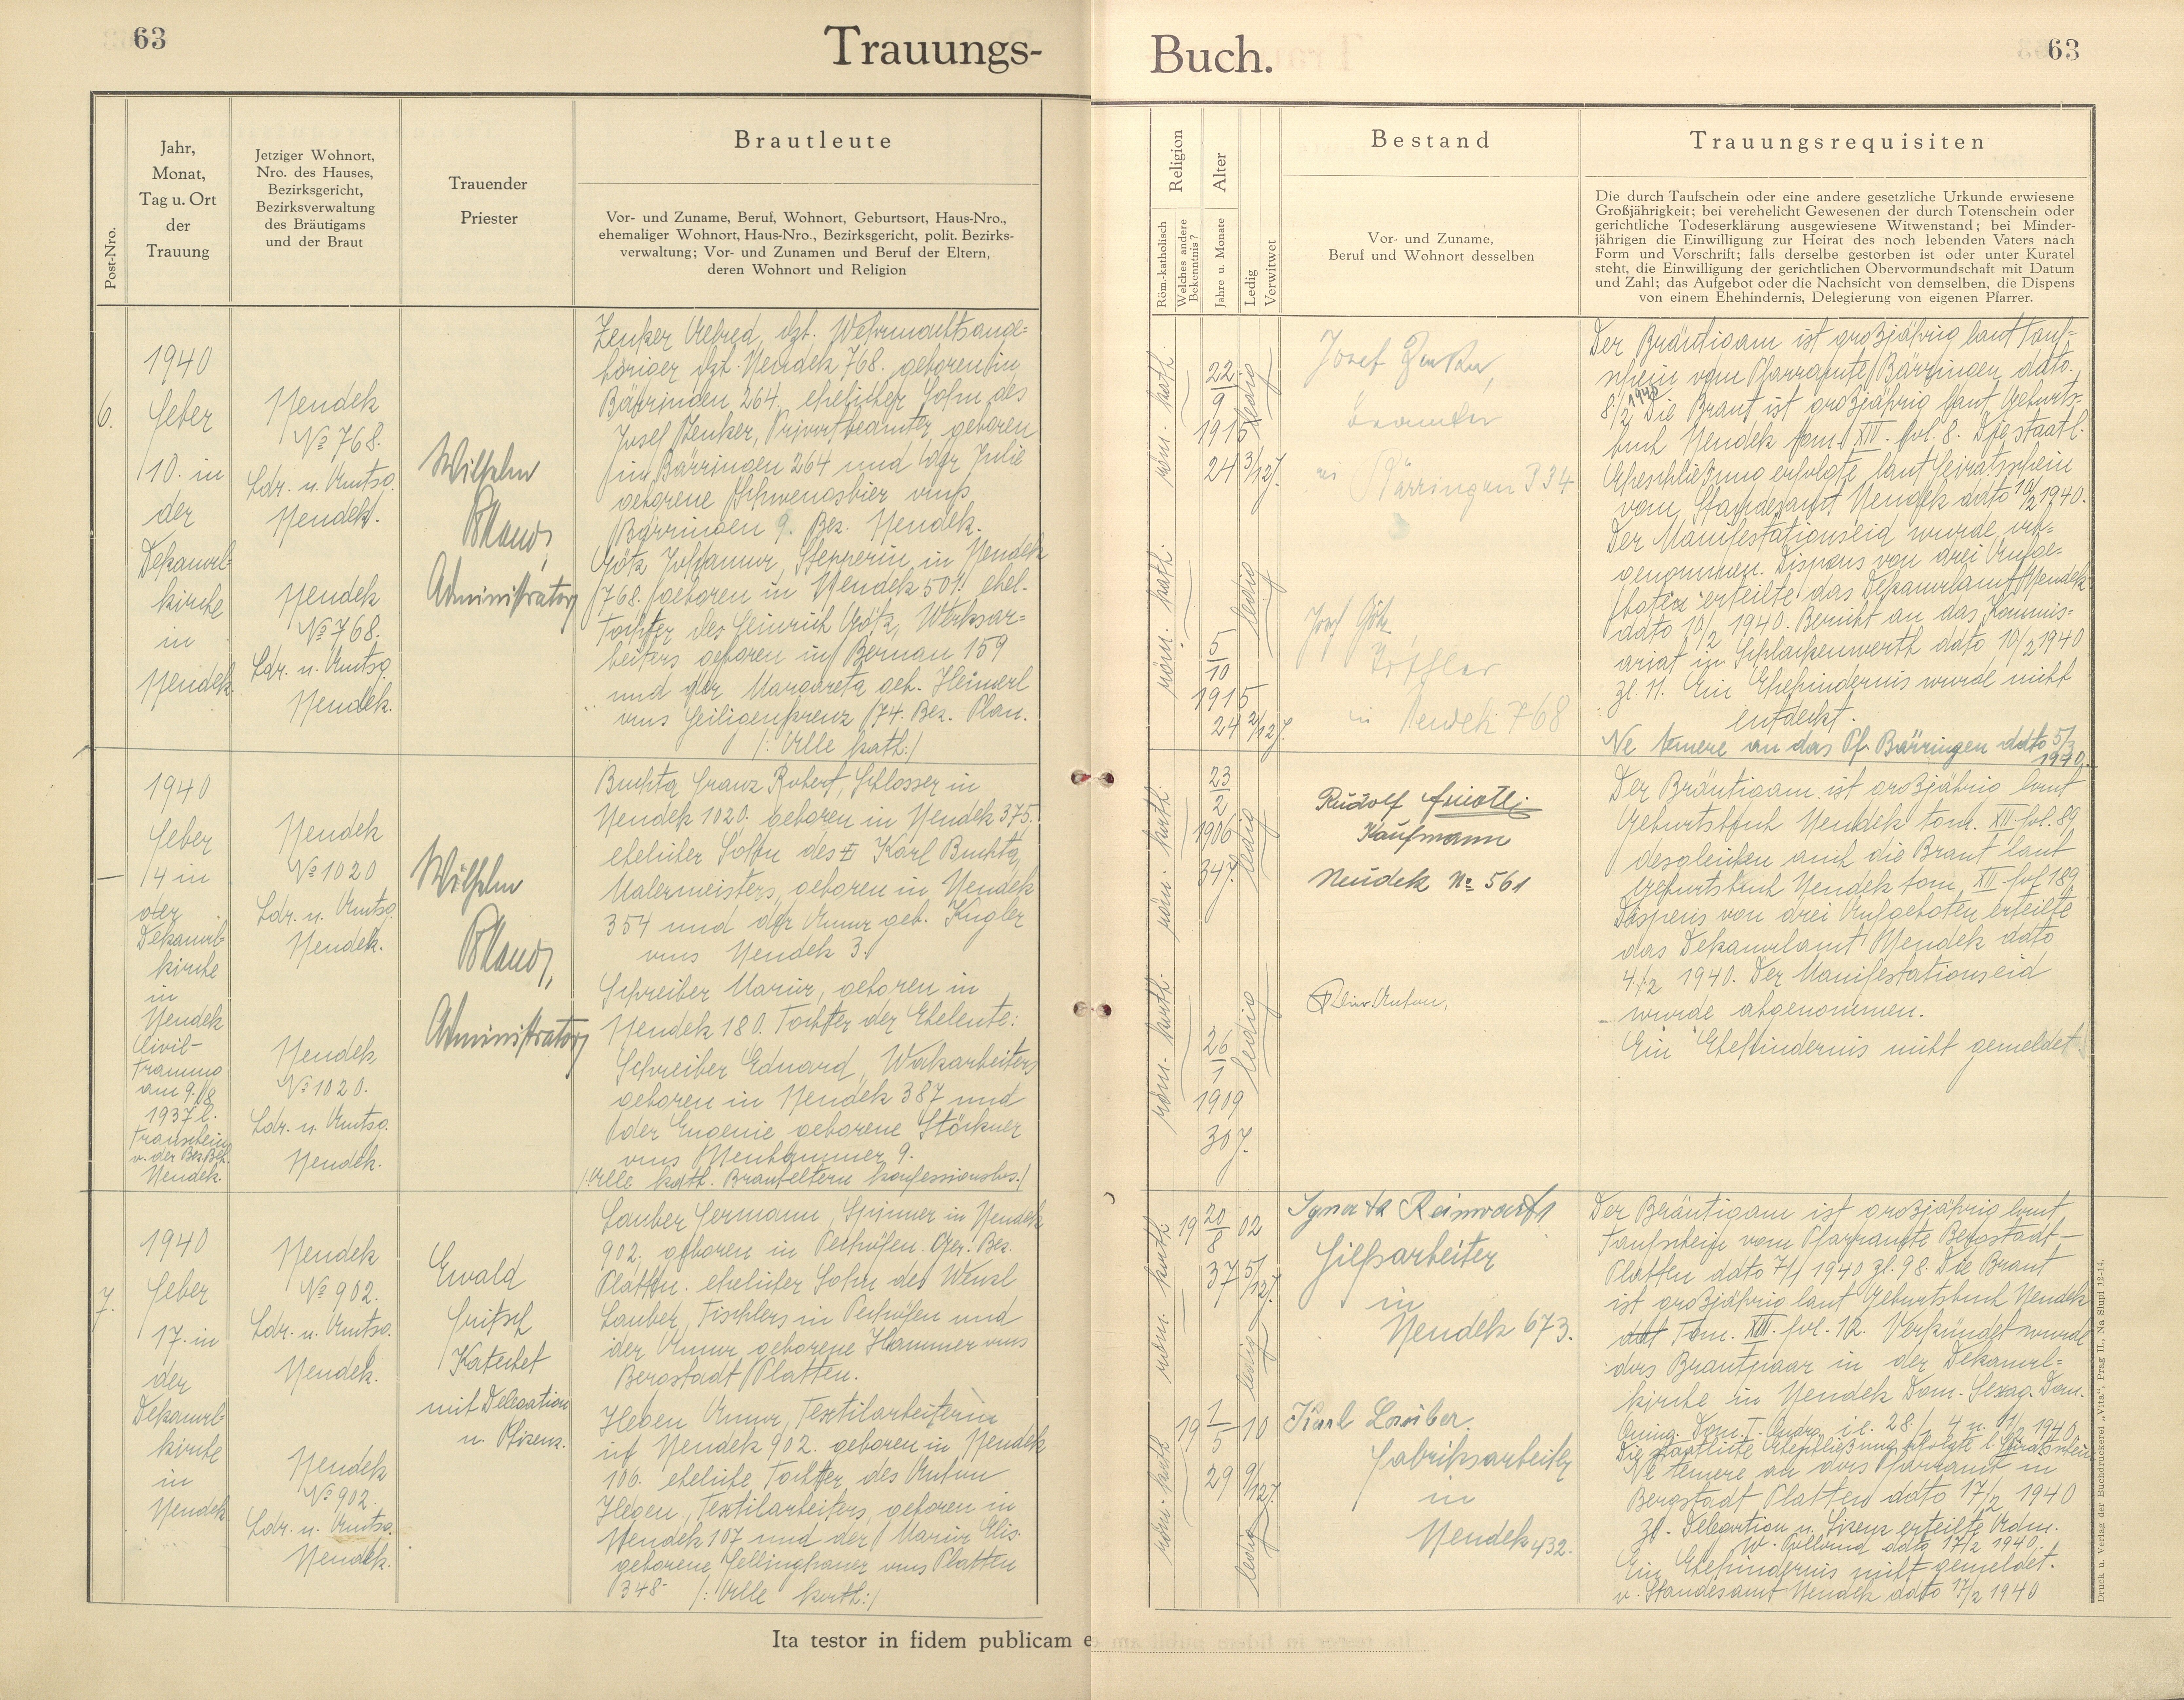 63
Trauungs-
Buch.
63
Post-Nro.
Jahr,
Monat,
Tag u. Ort
der
Trauung
Jetziger Wohnort,
Nro. des Hauses,
Bezirksgericht,
Bezirksverwaltung
des Bräutigams
und der Braut
Trauender
Priester
Brautleute
Vor- und Zuname, Beruf, Wohnort, Geburtsort, Haus-Nro.,
ehemaliger Wohnort, Haus-Nro., Bezirksgericht, polit. Bezirks-
verwaltung; Vor- und Zunamen und Beruf der Eltern,
deren Wohnort und Religion
Religion
Röm.-katholisch
Welches andere
Bekenntnis?
Alter
Jahre u. Monate
Ledig
Verwitwet
Bestand
Vor- und Zuname,
Beruf und Wohnort desselben
Trauungsrequisiten
Die durch Taufschein oder eine andere gesetzliche Urkunde erwiesene
Großjährigkeit; bei verehelicht Gewesenen der durch Totenschein oder
gerichtliche Todeserklärung ausgewiesene Witwenstand; bei Minder-
jährigen die Einwilligung zur Heirat des noch lebenden Vaters nach
Form und Vorschrift; falls derselbe gestorben ist oder unter Kuratel
steht, die Einwilligung der gerichtlichen Obervormundschaft mit Datum
und Zahl; das Aufgebot oder die Nachsicht von demselben, die Dispens
von einem Ehehindernis, Delegierung von eigenen Pfarrer.
6.
1940
Feber
10. in
der
Dekanal-
kirche
in
Neudek
Neudek
No 768.
Ldr. u. Amtsg.
Neudek.
Neudek
No 768.
Ldr. u. Amtsg.
Neudek.
Wilhelm
Administrator
Zenker Alfred, dzt. Wehrmachtsange-
höriger dzt. Neudek 768. geboren in
Bärringen 264. ehelicher Sohn des
Josef Zenker, Privatbeamter geboren
in Bärringen 264 und der Julie
geborene Schwengsbier aus
Bärringen 9. Bez. Neudek.
Götz Johanna, Stepperin in Neudek
768. geboren in Neudek 501. ehel.
Tochter des Heinrich Götz, Werksar-
beiters geboren in Bernau 159
und der Margareta geb. Heinerl
aus Heiligenkreuz 174. Bez. Plan.
/: Alle kath:/
röm. kath.
22
9
1915
24 3/12 J.
ledig
röm. kath.
5
10
1915
24 2/12 J.
ledig
Josef Zenker,
Beamter
in Bärringen 334
Josef Götz
Tischler
in Neudek 768
Der Bräutigam ist großjährig laut Tauf-
schein vom Pfarramte Bärringen, ddto.
8/2 1940 Die Braut ist großjährig laut Geburts-
buch Neudek tom. XIV. fol. 8. Die staatl.
Eheschließung erfolgte laut Heiratsschein
vom Standesamt Neudek ddto 10/2 1940.
Der Manifestationseid wurde ab-
genommen. Dispens von drei Aufge-
boten erteilte das Dekanalamt Neudek
dato 10/2 1940. Bericht an das Kommis-
ariat in Schlackenwerth dato 10/2 1940
Zl. 11. Ein Ehehindernis wurde nicht
entdeckt.
Ne temere an das Pf. Bärringen ddto 5/3
1940.
1940
Feber
4 in
der
Dekanal-
kirche
in
Neudek
Civil-
trauung
am 9./8.
1937 l.
Trauschein
v. der Bez. Beh.
Neudek.
Neudek
No 1020
Ldr. u. Amtsg.
Neudek.
Neudek
No 1020.
Ldr. u. Amtsg.
Neudek.
Wilhelm
Administrator
Buchta Franz Robert, Schlosser in
Neudek 1020. geboren in Neudek 375.
ehelicher Sohn des Karl Buchta,
Malermeisters, geboren in Neudek
354 und der Anna geb. Kugler
aus Neudek 3.
Schreiber Maria, geboren in
Neudek 180. Tochter der Eheleute:
Schreiber Eduard, Werksarbeiters
geboren in Neudek 387 und
der Eugenie geborene Störkner
aus Neuhammer 9.
/:Alle kath. Brauteltern konfessionslos./
röm. kath.
23
2
1906
34 J.
ledig
röm. kath.
26
1
1909
30 J.
ledig
Rudolf
Kaufmann
Neudek No 561
Anton,
Der Bräutigam ist großjährig laut
Geburtsbuch Neudek tom. XII fol. 89,
desgleichen auch die Braut laut
Geburtsbuch Neudek tom. XII. fol 189.
Dispens von drei Aufgeboten erteilte
das Dekanalamt Neudek ddto
4./2 1940. Der Manifestationseid
wurde abgenommen.
Ein Ehehindernis nicht gemeldet.
7.
1940
Feber
17. in
der
Dekanal-
kirche
in
Neudek
Neudek
No 902.
Ldr. u. Amtsg.
Neudek.
Neudek
No 902.
Ldr. u. Amtsg.
Neudek.
Ewald
Fritsch
Katechet
mit Delegation
u. Lizenz.
Lauber Hermann, Spinner in Neudek
902. geboren in Pechöfen Ger. Bez.
Platten. ehelicher Sohn des Wenzl
Lauber, Tischlers in Pechöfen und
der Anna geborene Hammer aus
Bergstadt Platten.
Heben Anna, Textilarbeiterin
in Neudek 902. geboren in Neudek
106. eheliche Tochter des Anton
Textilarbeiters, geboren in
Neudek 107 und der Maria Elis.
geborene Zettinghauer aus Platten
348. /: Alle kath:/
röm. kath
19 20/8 02
37 5/12 J.
ledig
röm. kath
19 1/5 10
29 9/12 J.
ledig
Ignatz Reinwarth
Hilfsarbeiter
in
Neudek 673.
Karl Lauber.
Fabriksarbeiter
in
Neudek 432.
Der Bräutigam ist großjährig laut
Taufschein vom Pfarramte Bergstadt-
Platten ddto 7/1 1940 Zl. 98. Die Braut
ist großjährig laut Geburtsbuch Neudek
Tom. XIII. fol. 12. Verkündet wurde
das Brautpaar in der Dekanal-
kirche in Neudek Dom. Sexag. Dom.
Quinq. Dom. I. Quadr. i.e. 28./1 4 u. 11/2 1940.
Die staatliche Eheschließung erfolgte l. Heiratsschein
Ne temere an das Pfarramt in
Bergstadt Platten ddto 17/2 1940
Zl- Delegation u. Lizenz erteilte Adm.
ddto 17/2 1940.
Ein Ehehindernis nicht gemeldet.
v. Standesamt Neudek ddto 17/2 1940
Ita testor in fidem publicam e
Druck u. Verlag der Buchdruckerei „Vita“, Prag II., Na Slupi 12-14.